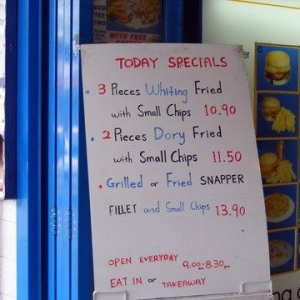 TODAY SPECIALS
3 Pieces Whiting Fried
with Small Chips 10.90
2 Pieces Dory Fried
with Small Chips 11.50
Grilled or Fried SNAPPER
FILLET and Small Chips 13.90
OPEN EVERYDAY 9.00-8.30pm
EAT IN or TAKEAWAY